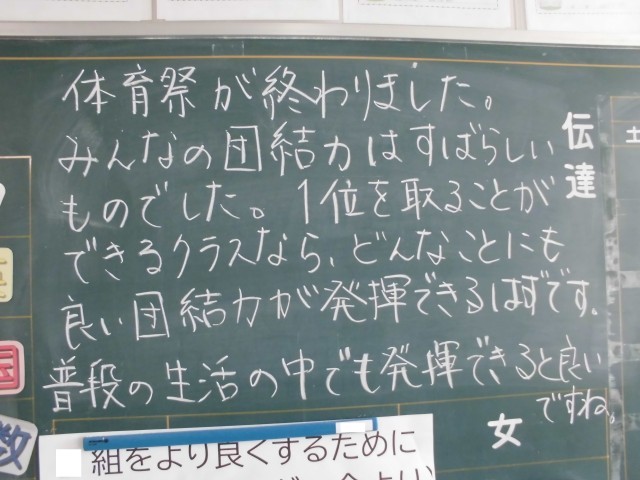 体育祭が終わりました。
みんなの団結力はすばらしい
ものでした。1位を取ることが
できるクラスなら、どんなことにも
良い団結力が発揮できるはずです。
普段の生活の中でも発揮できると良い
ですね。
伝達
女
組をより良くするために
数